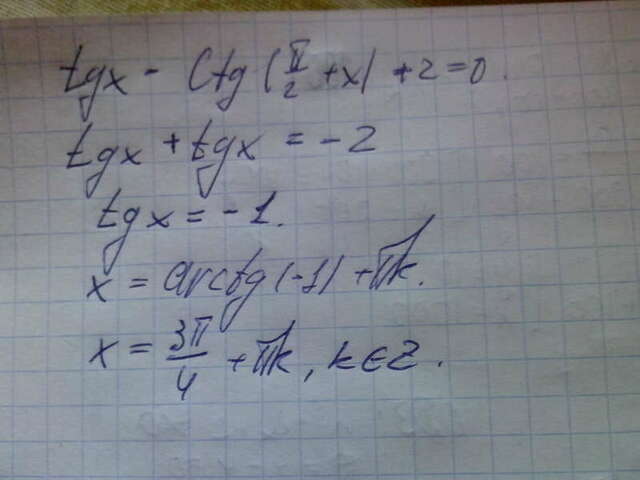 tgx - Ctg (π/2 + x) + 2 = 0.
tgx + tgx = -2
tgx = -1.
x = arctg(-1) + πk.
x = 3π/4 + πk, k∈Z.